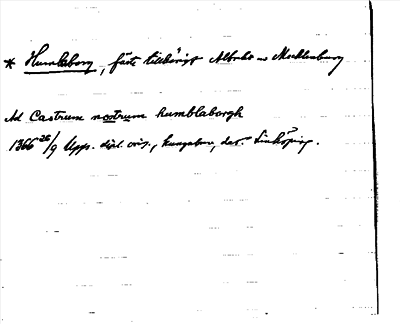 * Humlaborg, fäste tillhörigt Albrekt av Mecklenburg
Ad Castrum nostrum humblaborgh
1366 26/9 Upps. dipl. orig., kungabrev, dat. Linköping.